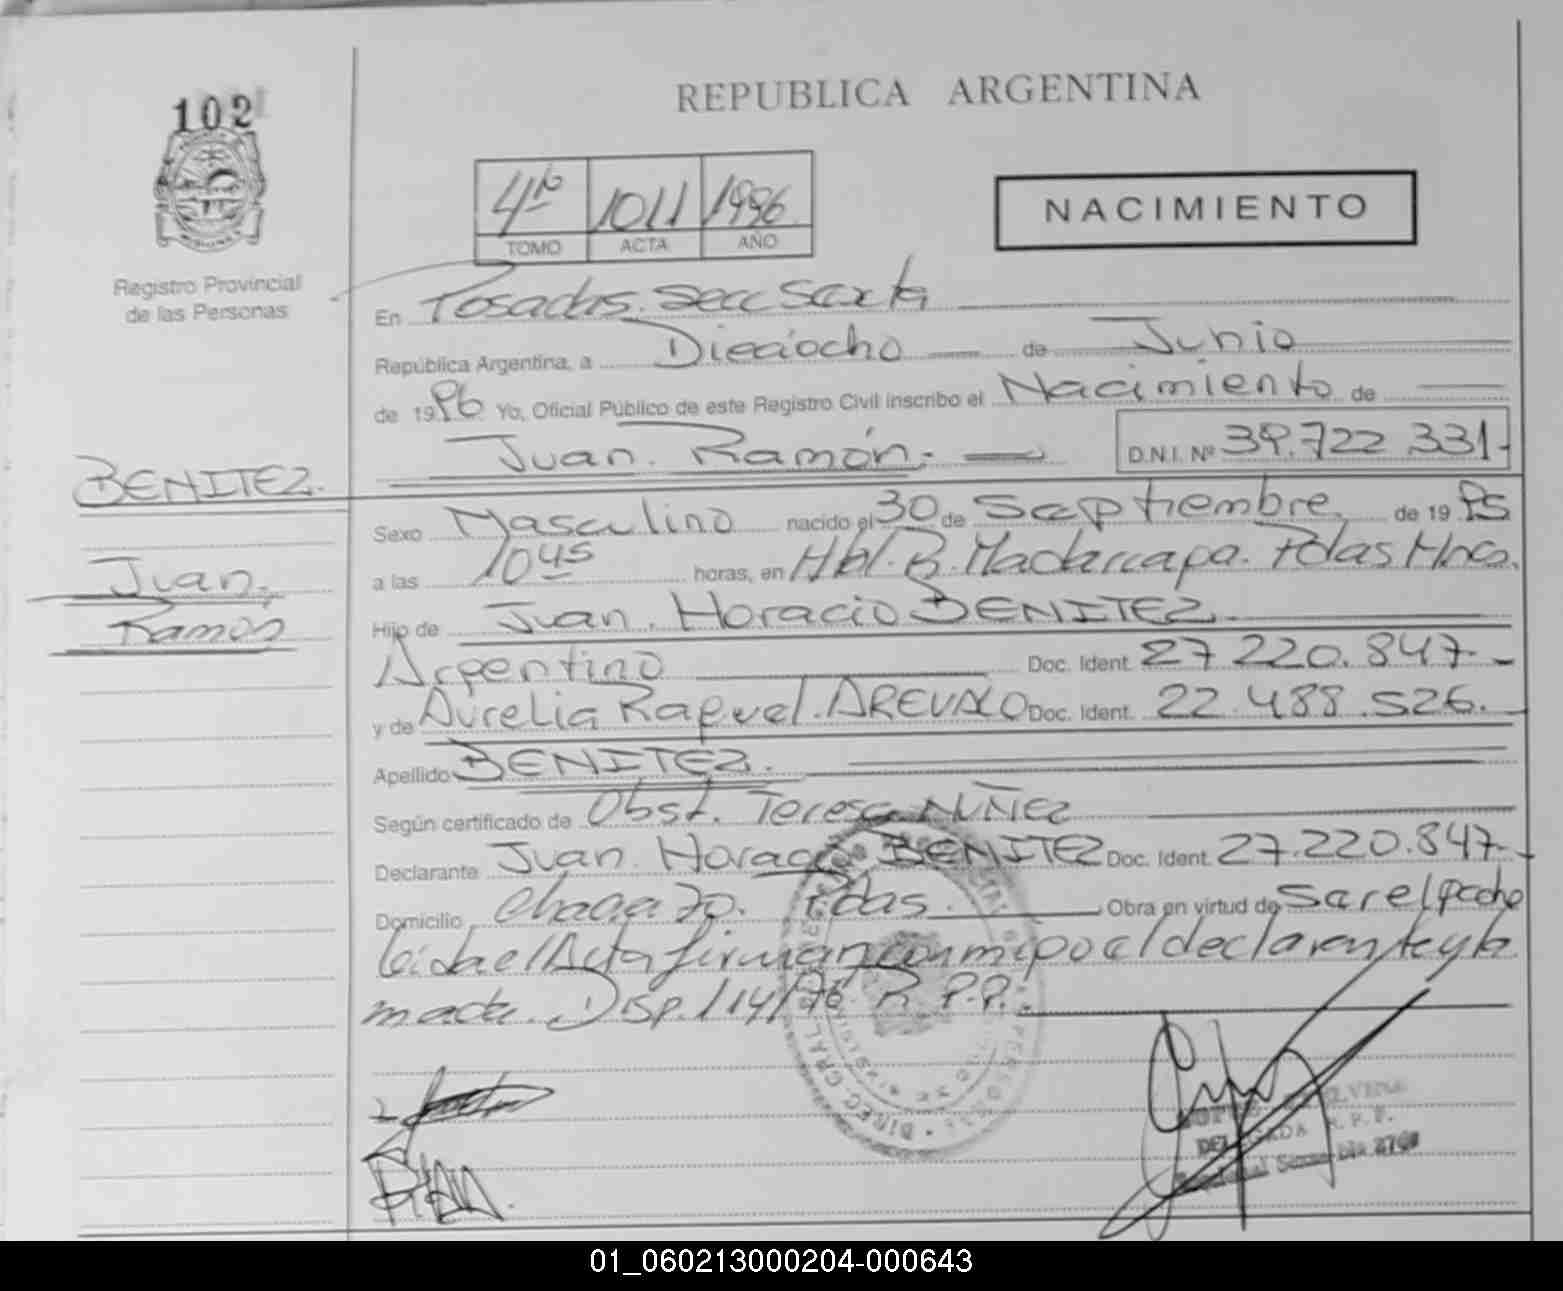 102
REPUBLICA ARGENTINA
4to 1011 1996
TOMO ACTA AÑO
NACIMIENTO
Registro Provincial
de las Personas
En Posadas. Secc Sexta
República Argentina, a Dieciocho de Junio
de 1996 Yo, Oficial Público de este Registro Civil inscribo el Nacimiento de
Juan Ramón. D.N.I. Nº 39.722.331
BENITEZ.
Juan
Ramón
Sexo Masculino nacido el 30 de Septiembre de 1995
a las 10 45 horas, en Hptl. R. Madariaga. Pdas Mnes.
Hijo de Juan Horacio BENITEZ
Argentino Doc. Ident. 27 220.847
y de Aurelia Raquel AREVALO Doc. Ident. 22.488.526.
Apellido BENITEZ.
Según certificado de Obst. Teresa NUÑEZ
Declarante Juan Horacio BENITEZ Doc. Ident. 27.220.847
Domicilio Chaca 70. Pdas. Obra en virtud de ser el padre
leida el Acta firman conmigo el declarante y la
madre. Disp. 114/96 R.P.P.
DIREC. GRAL.
DELEGADA R.P.P.
01_060213000204-000643